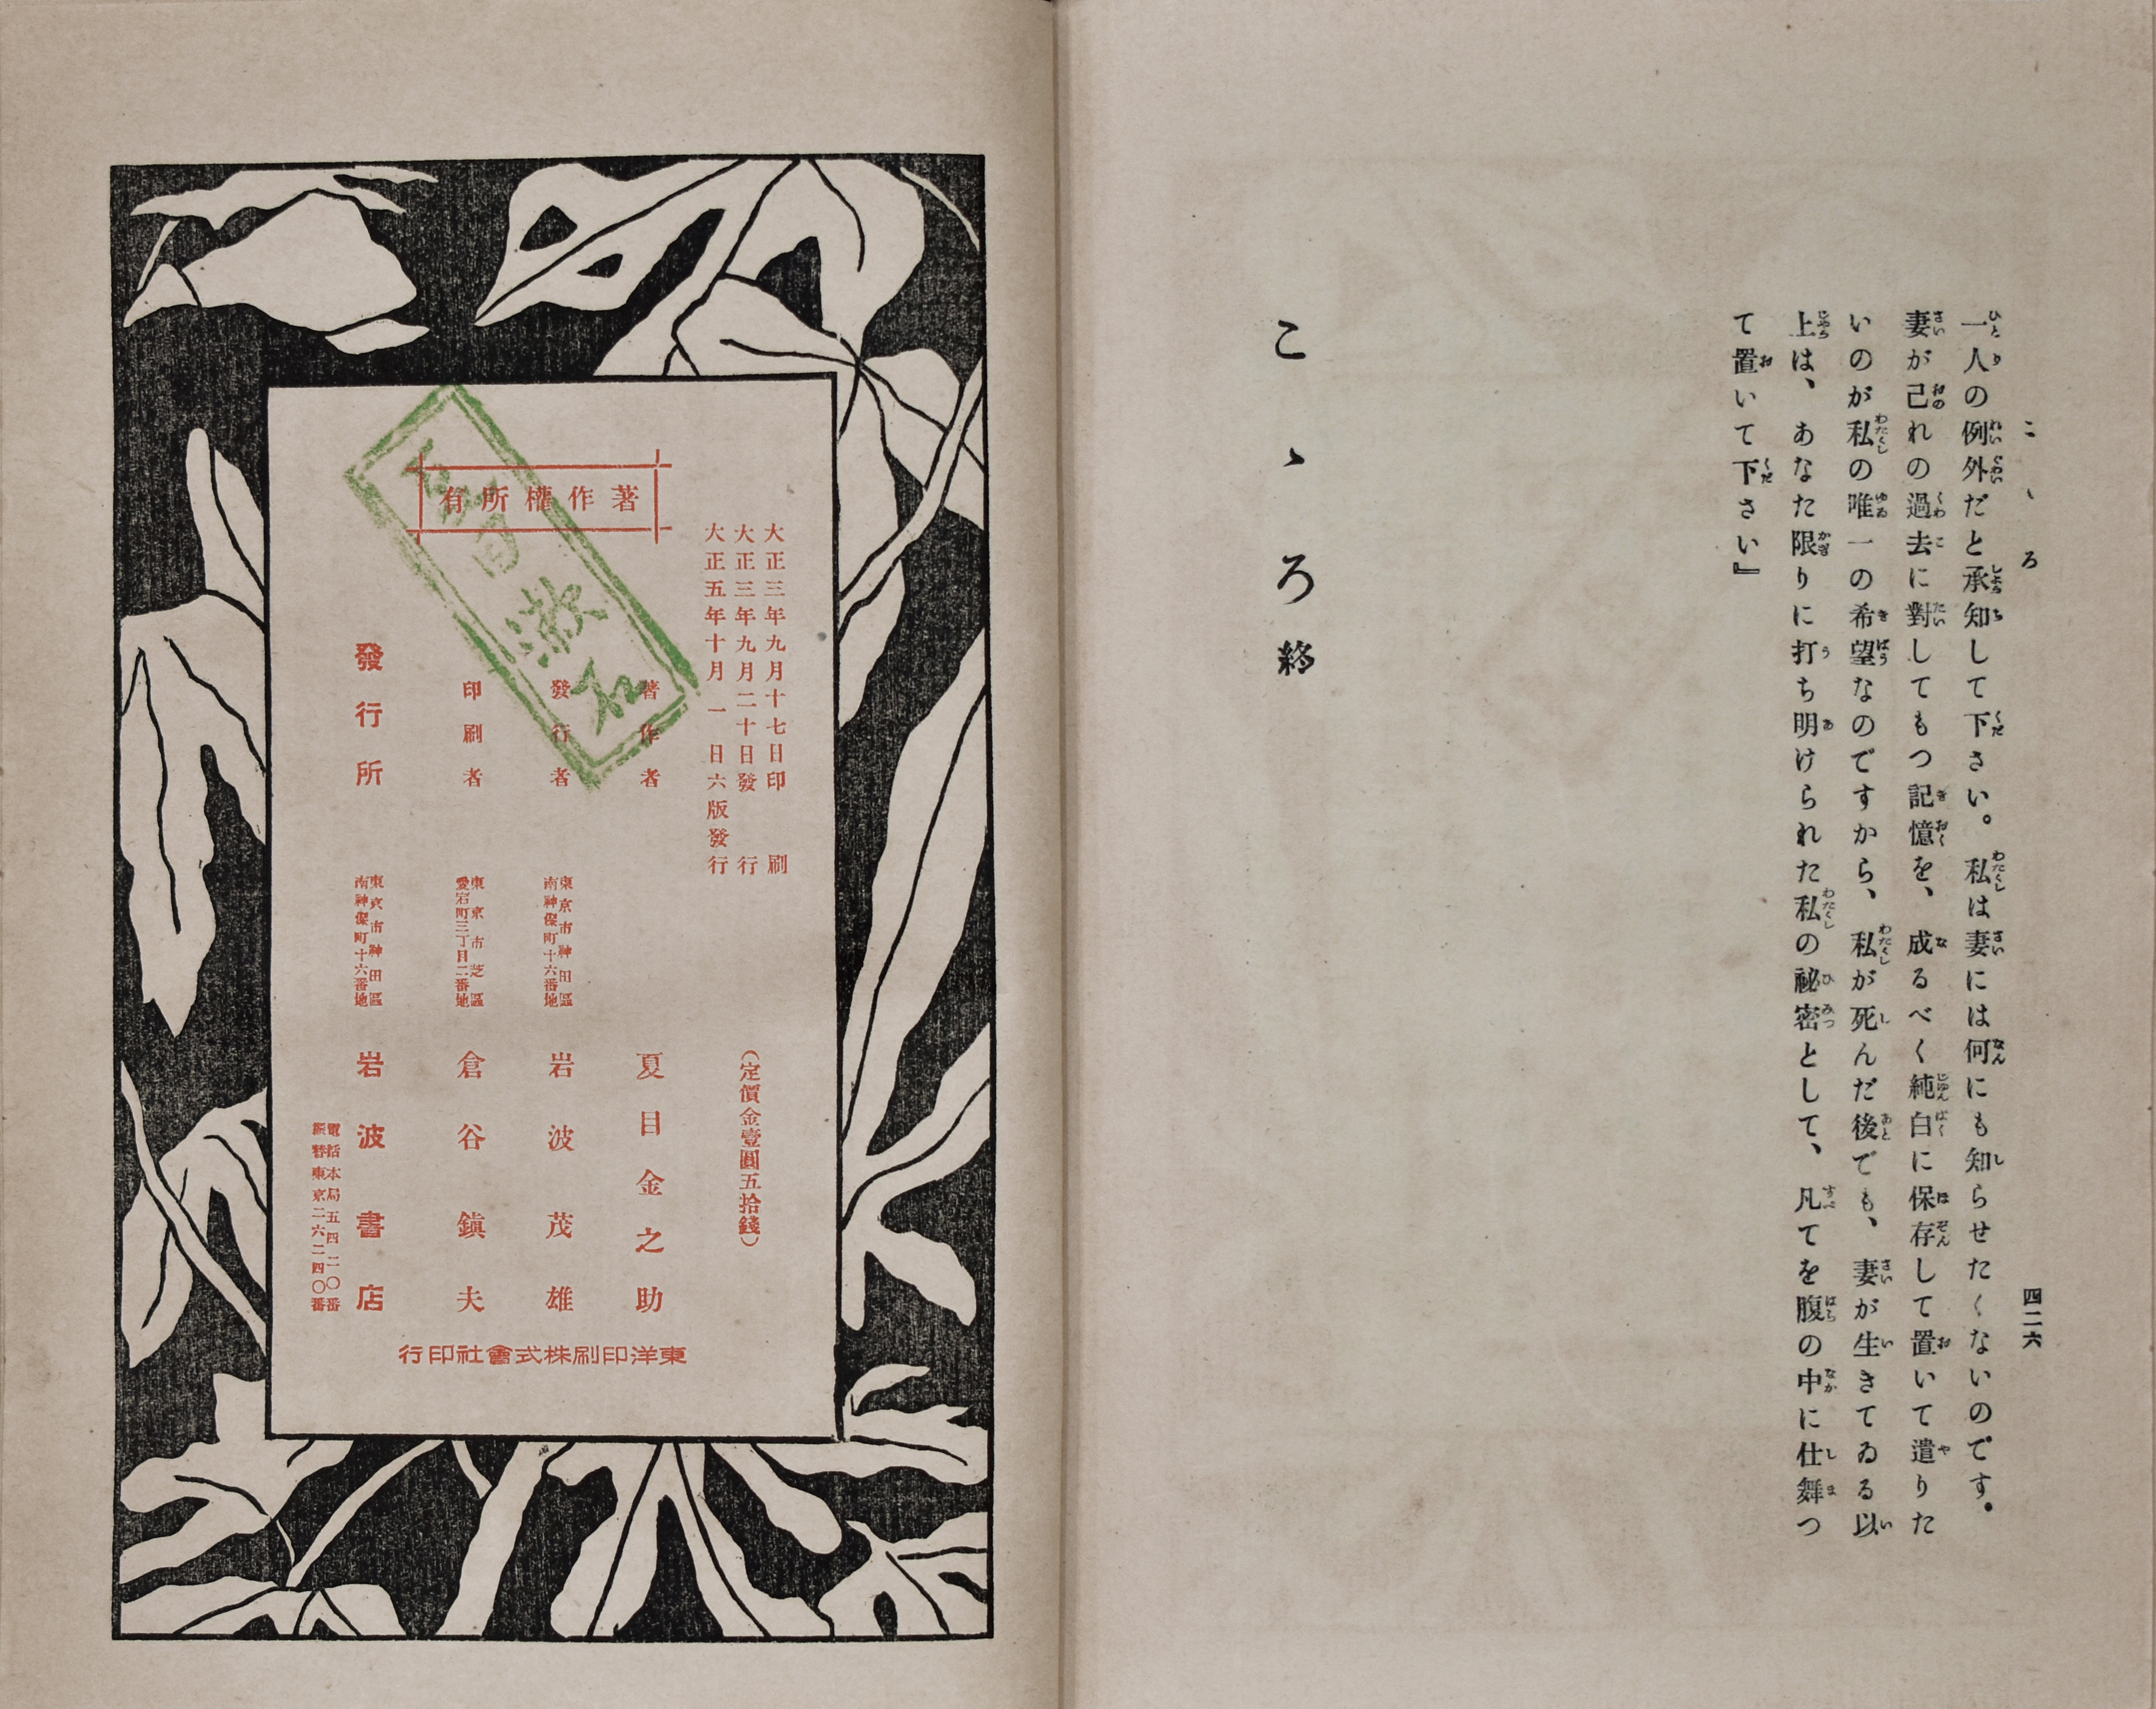 こゝろ
四二六
一人の例外だと承知して下さい。私は妻には何にも知らせたくないのです。
妻が己れの過去に對してもつ記憶を、成るべく純白に保存して置いて遣りた
いのが私の唯一の希望なのですから、私が死んだ後でも、妻が生きてゐる以
上は、あなた限りに打ち明けられた私の祕密として、凡てを腹の中に仕舞つ
て置いて下さい』
こゝろ終
著作權所有
夏目漱石
大正三年九月十七日印刷
大正三年九月二十日發行
大正五年十月一日六版發行
(定價金壹圓五拾錢)
著作者 夏目金之助
發行者 東京市神田區南神保町十六番地 岩波茂雄
印刷者 東京市芝區愛宕町三丁目二番地 倉谷鎭夫
發行所 東京市神田區南神保町十六番地 岩波書店
電話本局五四二〇番
振替東京二六二四〇番
東洋印刷株式會社印行